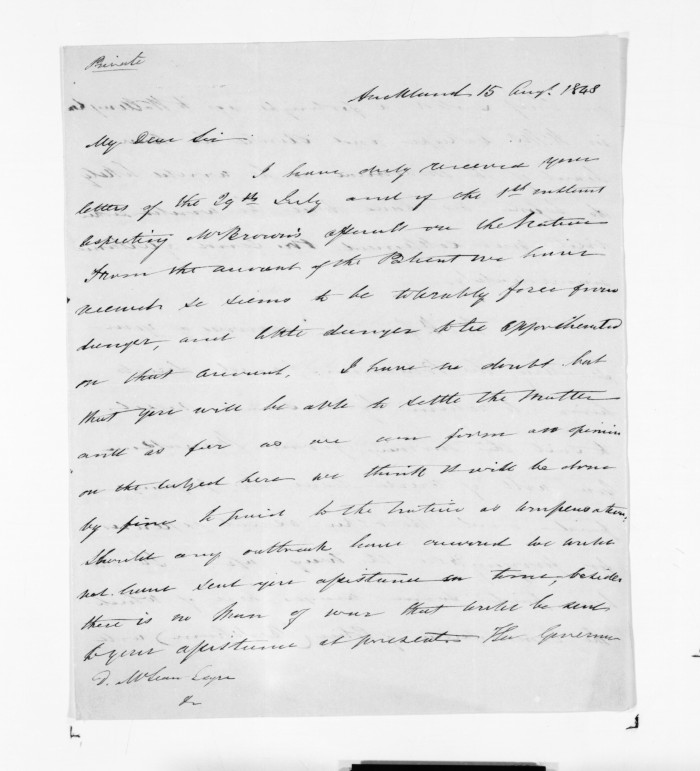 Private
Auckland 15 Augt. 1848
My Dear Sir
I have duly received your
letters of the 29th July and of the 1st instant
respecting Mr Brown's assault on the Native
From the account of the Patient we have
received he seems to be tolerably free from
danger, and little danger to be apprehended
on that account. I have no doubt but
that you will be able to settle the matter
and as far as we can form an opinion
on the subject here we think it will be done
by fine to paid to the Native as compensation;
Should any outbreak have occurred we could
not have sent you assistance in time, besides
there is no Man of war that could be sent
to your assistance at present. The Governor
D. McLean Esqre